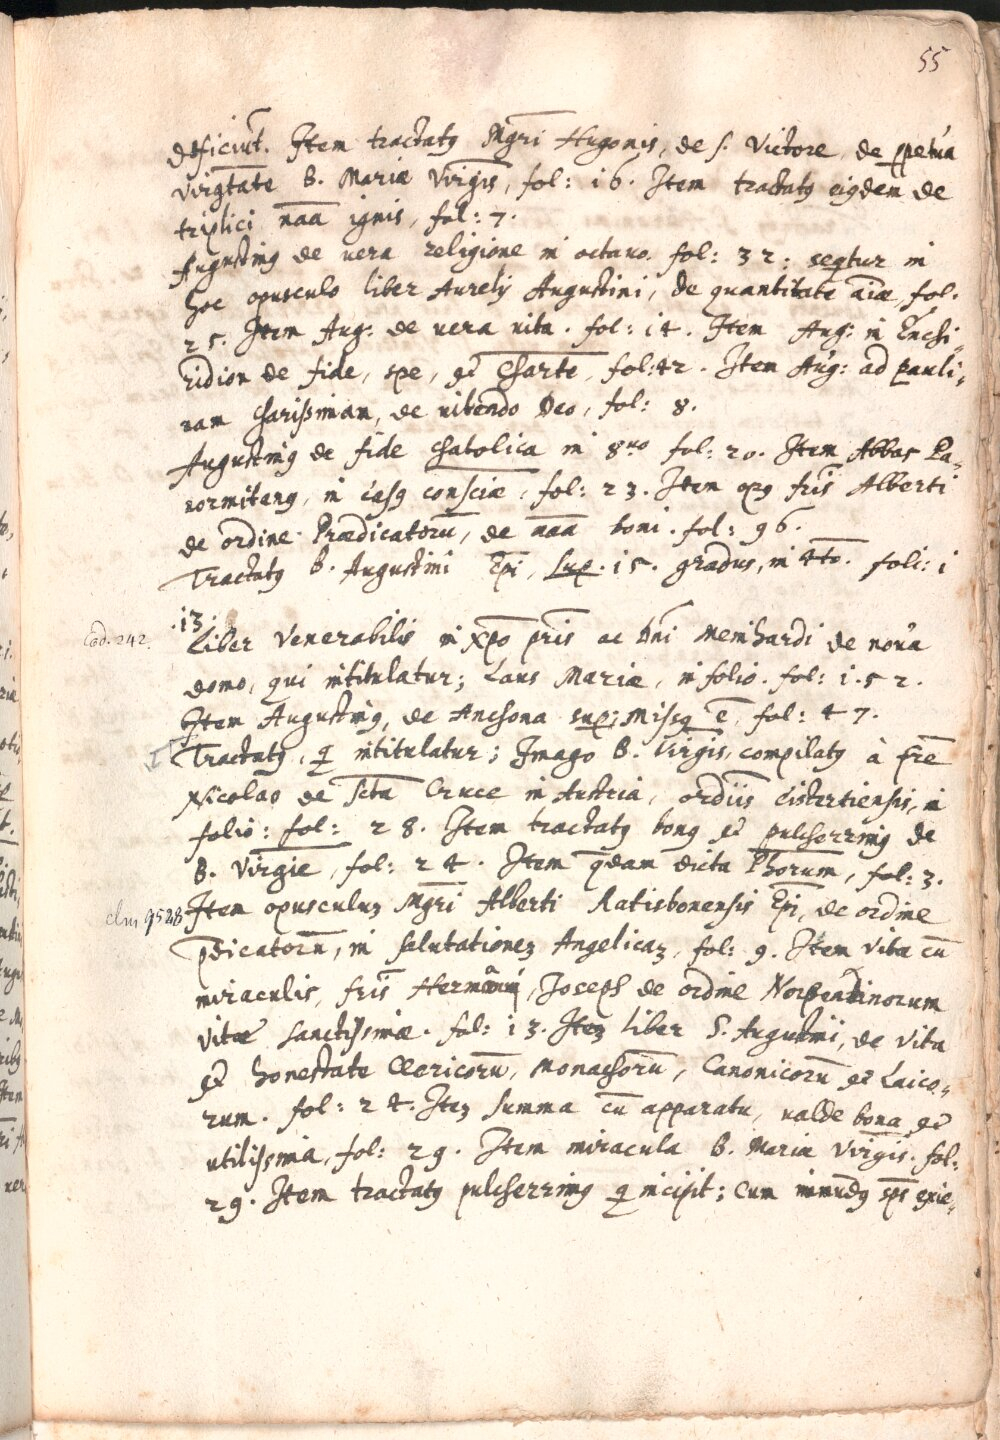 55
deficiūt. Item tractatꝰ Mḡri Hugonis, de S. Victore, de ꝑpetua
virgītate B. Mariæ Virgīs, fol: 16. Item tractatꝰ eiꝰdem de
triplici naā ignis, fol: 7.
Augustinꝰ de uera religione in octauo. fol: 32: seqtur in
hoc opusculo liber Aurelÿ Augustini, de quantitate aīæ, fol.
25. Item Aug: de uera uita. fol: 14. Item Aug: in Enchi,
ridion de fide, spe, et Charte, fol: 42. Item Aug: ad pauli,
nam charissimam, de uidendo Deo, fol: 8.
Augustinꝰ de fide Catholica in 8uo fol: 20. Item Abbas Pa,
normitanꝰ, in Casꝰ consciæ, fol: 23. Item opꝰ fr̄is Alberti
de ordine Prædicatorū, de naā boni. fol: 96.
Tractatꝰ B. Augustini Ep̄i, Suꝑ. 15. gradus, in 4to. foli: 1
.13.
Cod. 242.
Liber Venerabilis in Xp̄o pr̄is ac Dn̄i Meinhardi de noua
domo, qui intitulatur; Laus Mariæ, in folio. fol: 1.52.
Item Augustinꝰ, de Anchona suꝑ; Missꝰ ē, fol: 47.
Tractatꝰ, q̄ intitulatur; Imago B. Virgīs, compilatꝰ à fr̄e
Nicolao de Sctā Cruce in Austria, ordīis Cistertiensis, in
folio: fol: 28. Item tractatꝰ bonꝰ et pulcherrimꝰ de
B. Virgīe, fol: 24. Item q̄dam dicta Phorum, fol: 3.
clm 9528
Item opusculuꝫ Mḡri Alberti Ratisbonensis Ep̄i, de ordine
p̄dicatorū, in salutationeꝫ Angelicaꝫ, fol: 9. Item Vita cū
miraculis, fr̄is Hermānni, Joseph de ordine Norpertinorum
vitæ sanctissimæ. fol: 13. Iteꝫ liber S. Augustini, de Vita
et honestate Clericorū, Monachorū, Canonicorū et Laico,
rum. fol: 24. Iteꝫ Summa cū apparatu, ualde bona et
utilissima, fol: 29. Item miracula B. Mariæ Virgīs. fol:
29. Item tractatꝰ pulcherrimꝰ q̄ incipit; Cum inmūdꝰ sp̄s exie,